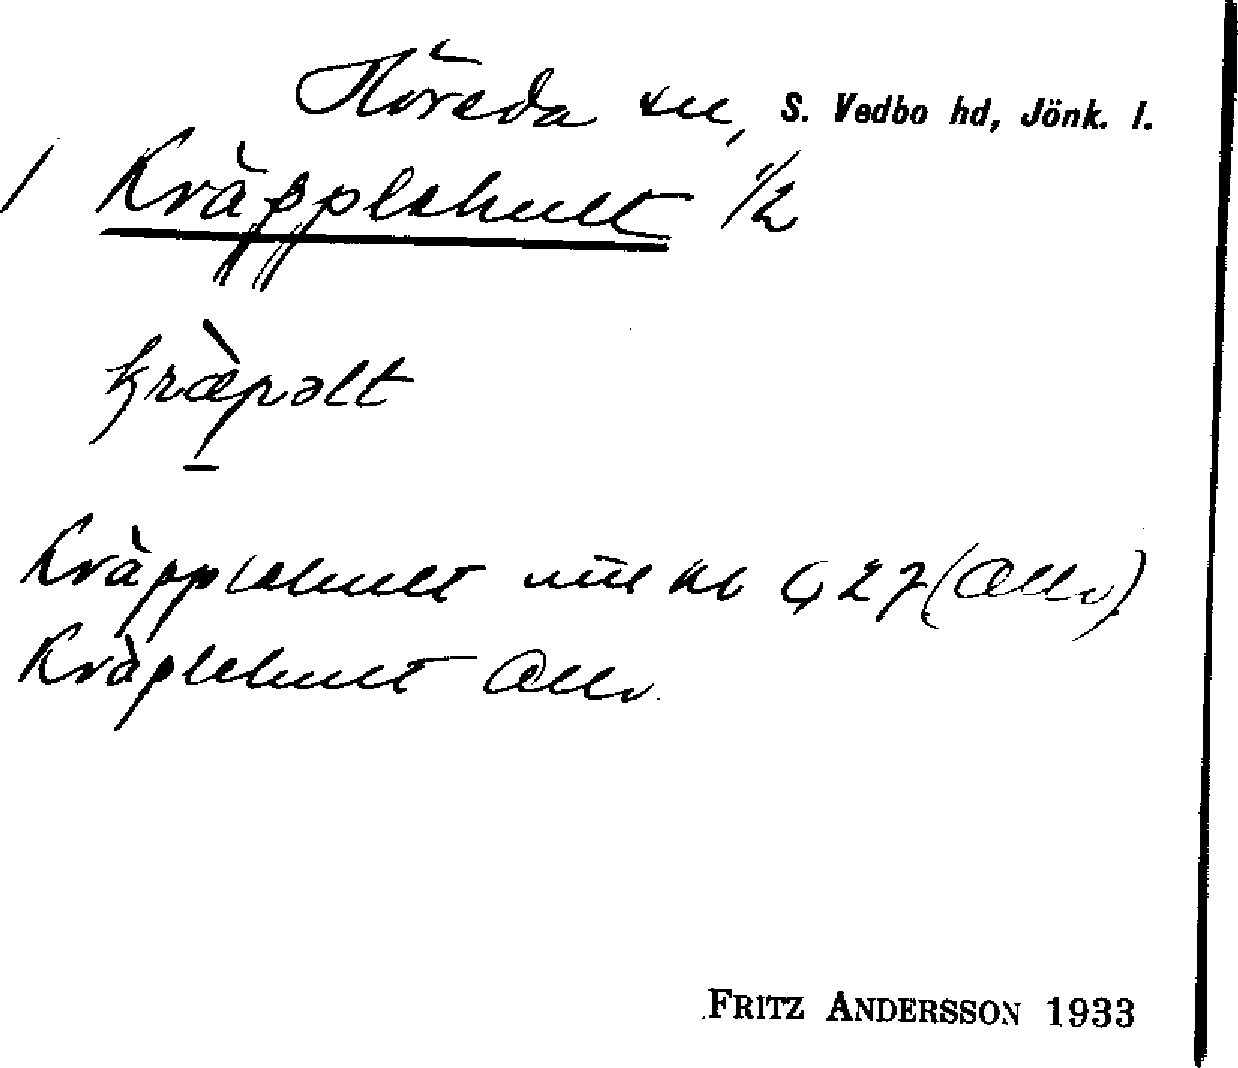 Höreda sn, S. Vedbo hd, Jönk. l.
/ Kräpplehult 1/2
kræ̀pəlt
Kräpplehult (Allm)
Kräplehult Allm.
FRITZ ANDERSSON 1933